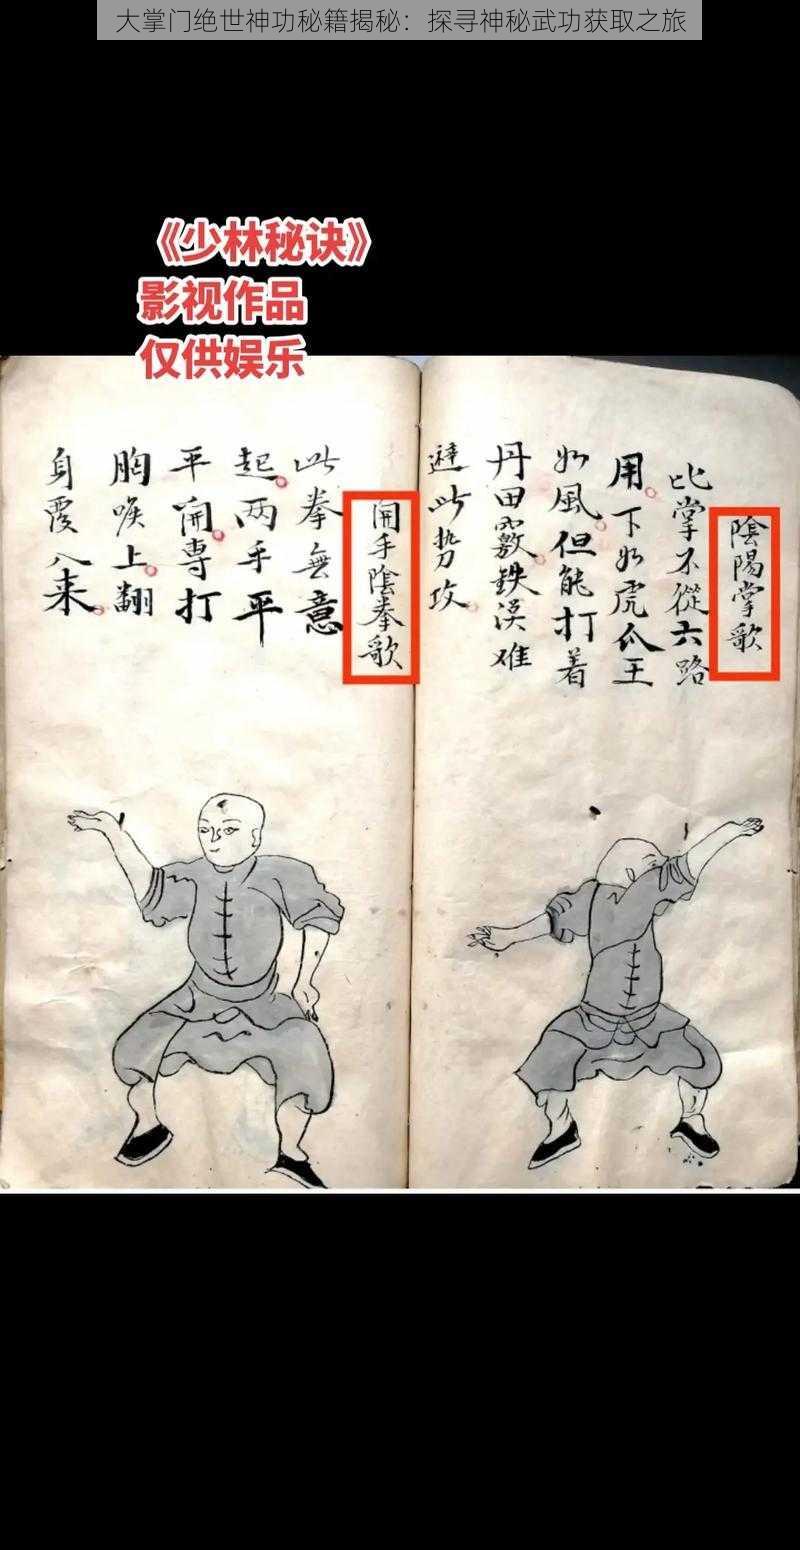 大掌门绝世神功秘籍揭秘：探寻神秘武功获取之旅
《少林秘诀》
影视作品
仅供娱乐
陰陽掌歌
比掌不從六路
用下如虎爪王
如風但能打着
丹田竅鉄漢难
避此势攻
開手陰拳歌
此拳無意
起两手平
平開専打
胸喉上翻
身覆入来